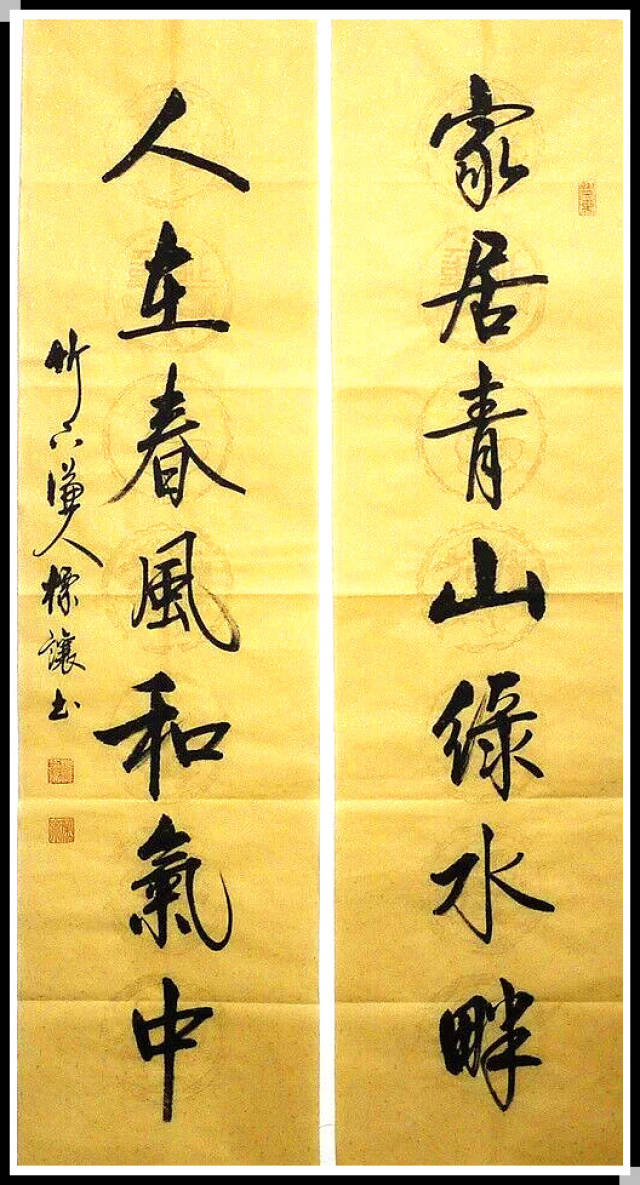 家居青山綠水畔
人在春風和氣中
竹下漁人標讓书